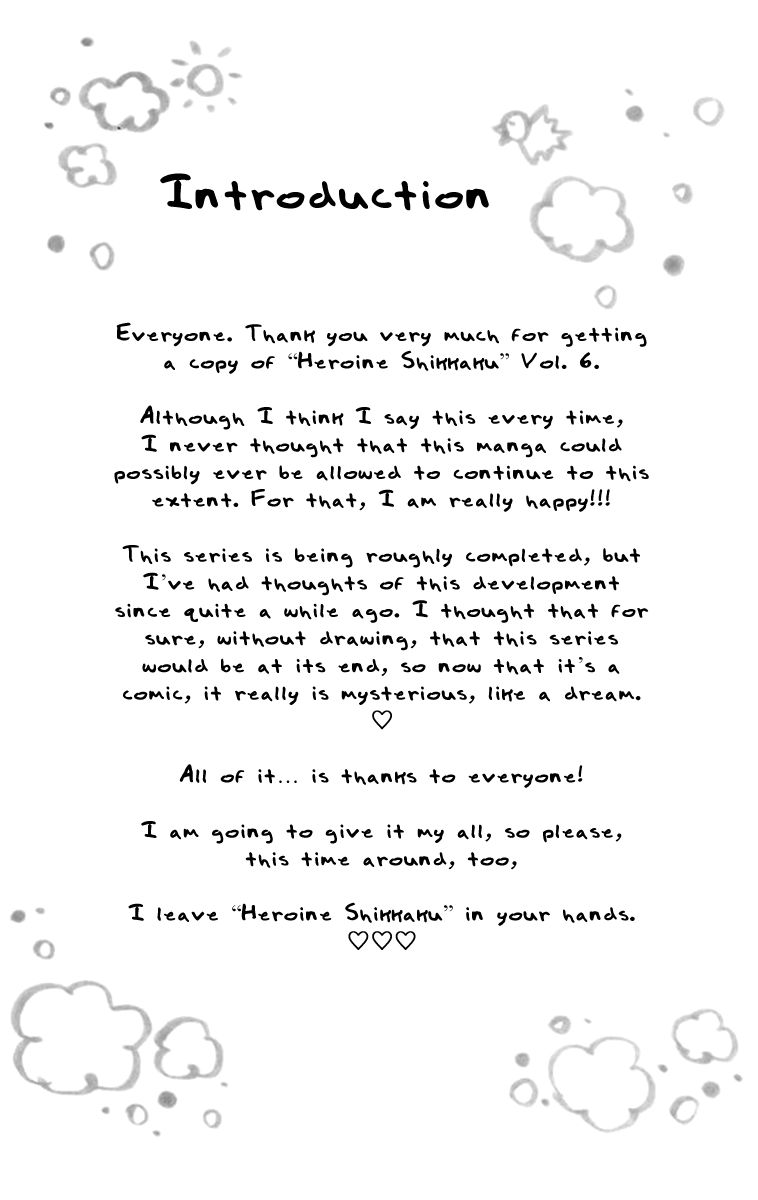 Introduction
Everyone. Thank you very much for getting
a copy of “Heroine Shikkaku” Vol. 6.
Although I think I say this every time,
I never thought that this manga could
possibly ever be allowed to continue to this
extent. For that, I am really happy!!!
This series is being roughly completed, but
I’ve had thoughts of this development
since quite a while ago. I thought that for
sure, without drawing, that this series
would be at its end, so now that it’s a
comic, it really is mysterious, like a dream.
♡
All of it... is thanks to everyone!
I am going to give it my all, so please,
this time around, too,
I leave “Heroine Shikkaku” in your hands.
♡♡♡